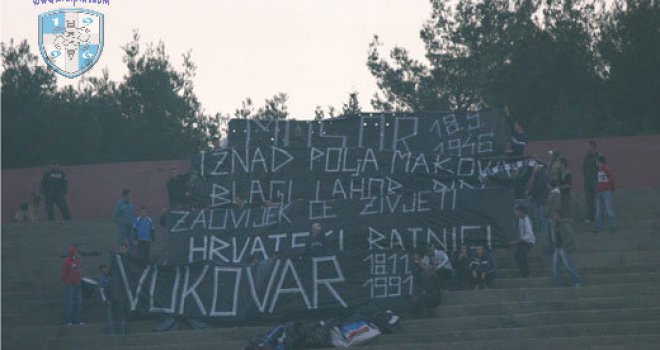 MOSTAR 18.9
1946
IZNAD POLJA MAKOVA
BLAGI LAHOR PIRI
ZAUVIJEK ĆE ŽIVJETI
HRVATSKI RATNICI
VUKOVAR 18.11
1991